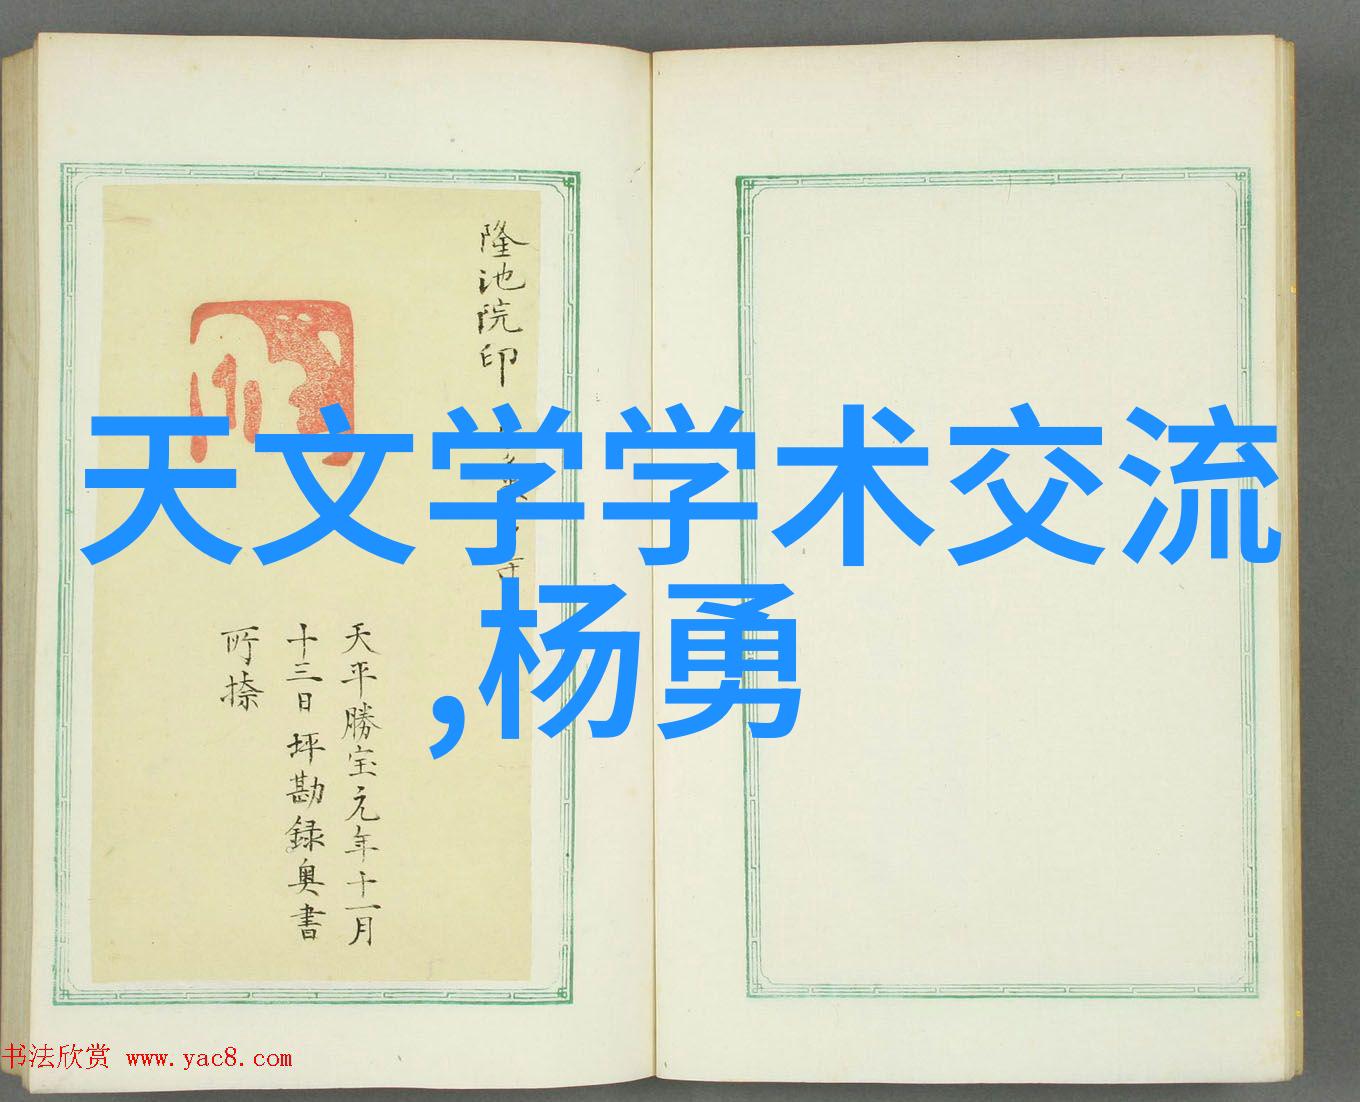 隆池院印
天文学学术交流
,杨勇
天平勝宝元年十一月
十三日 坪勘録奥書
所捺
书法欣赏 www.yac8.com